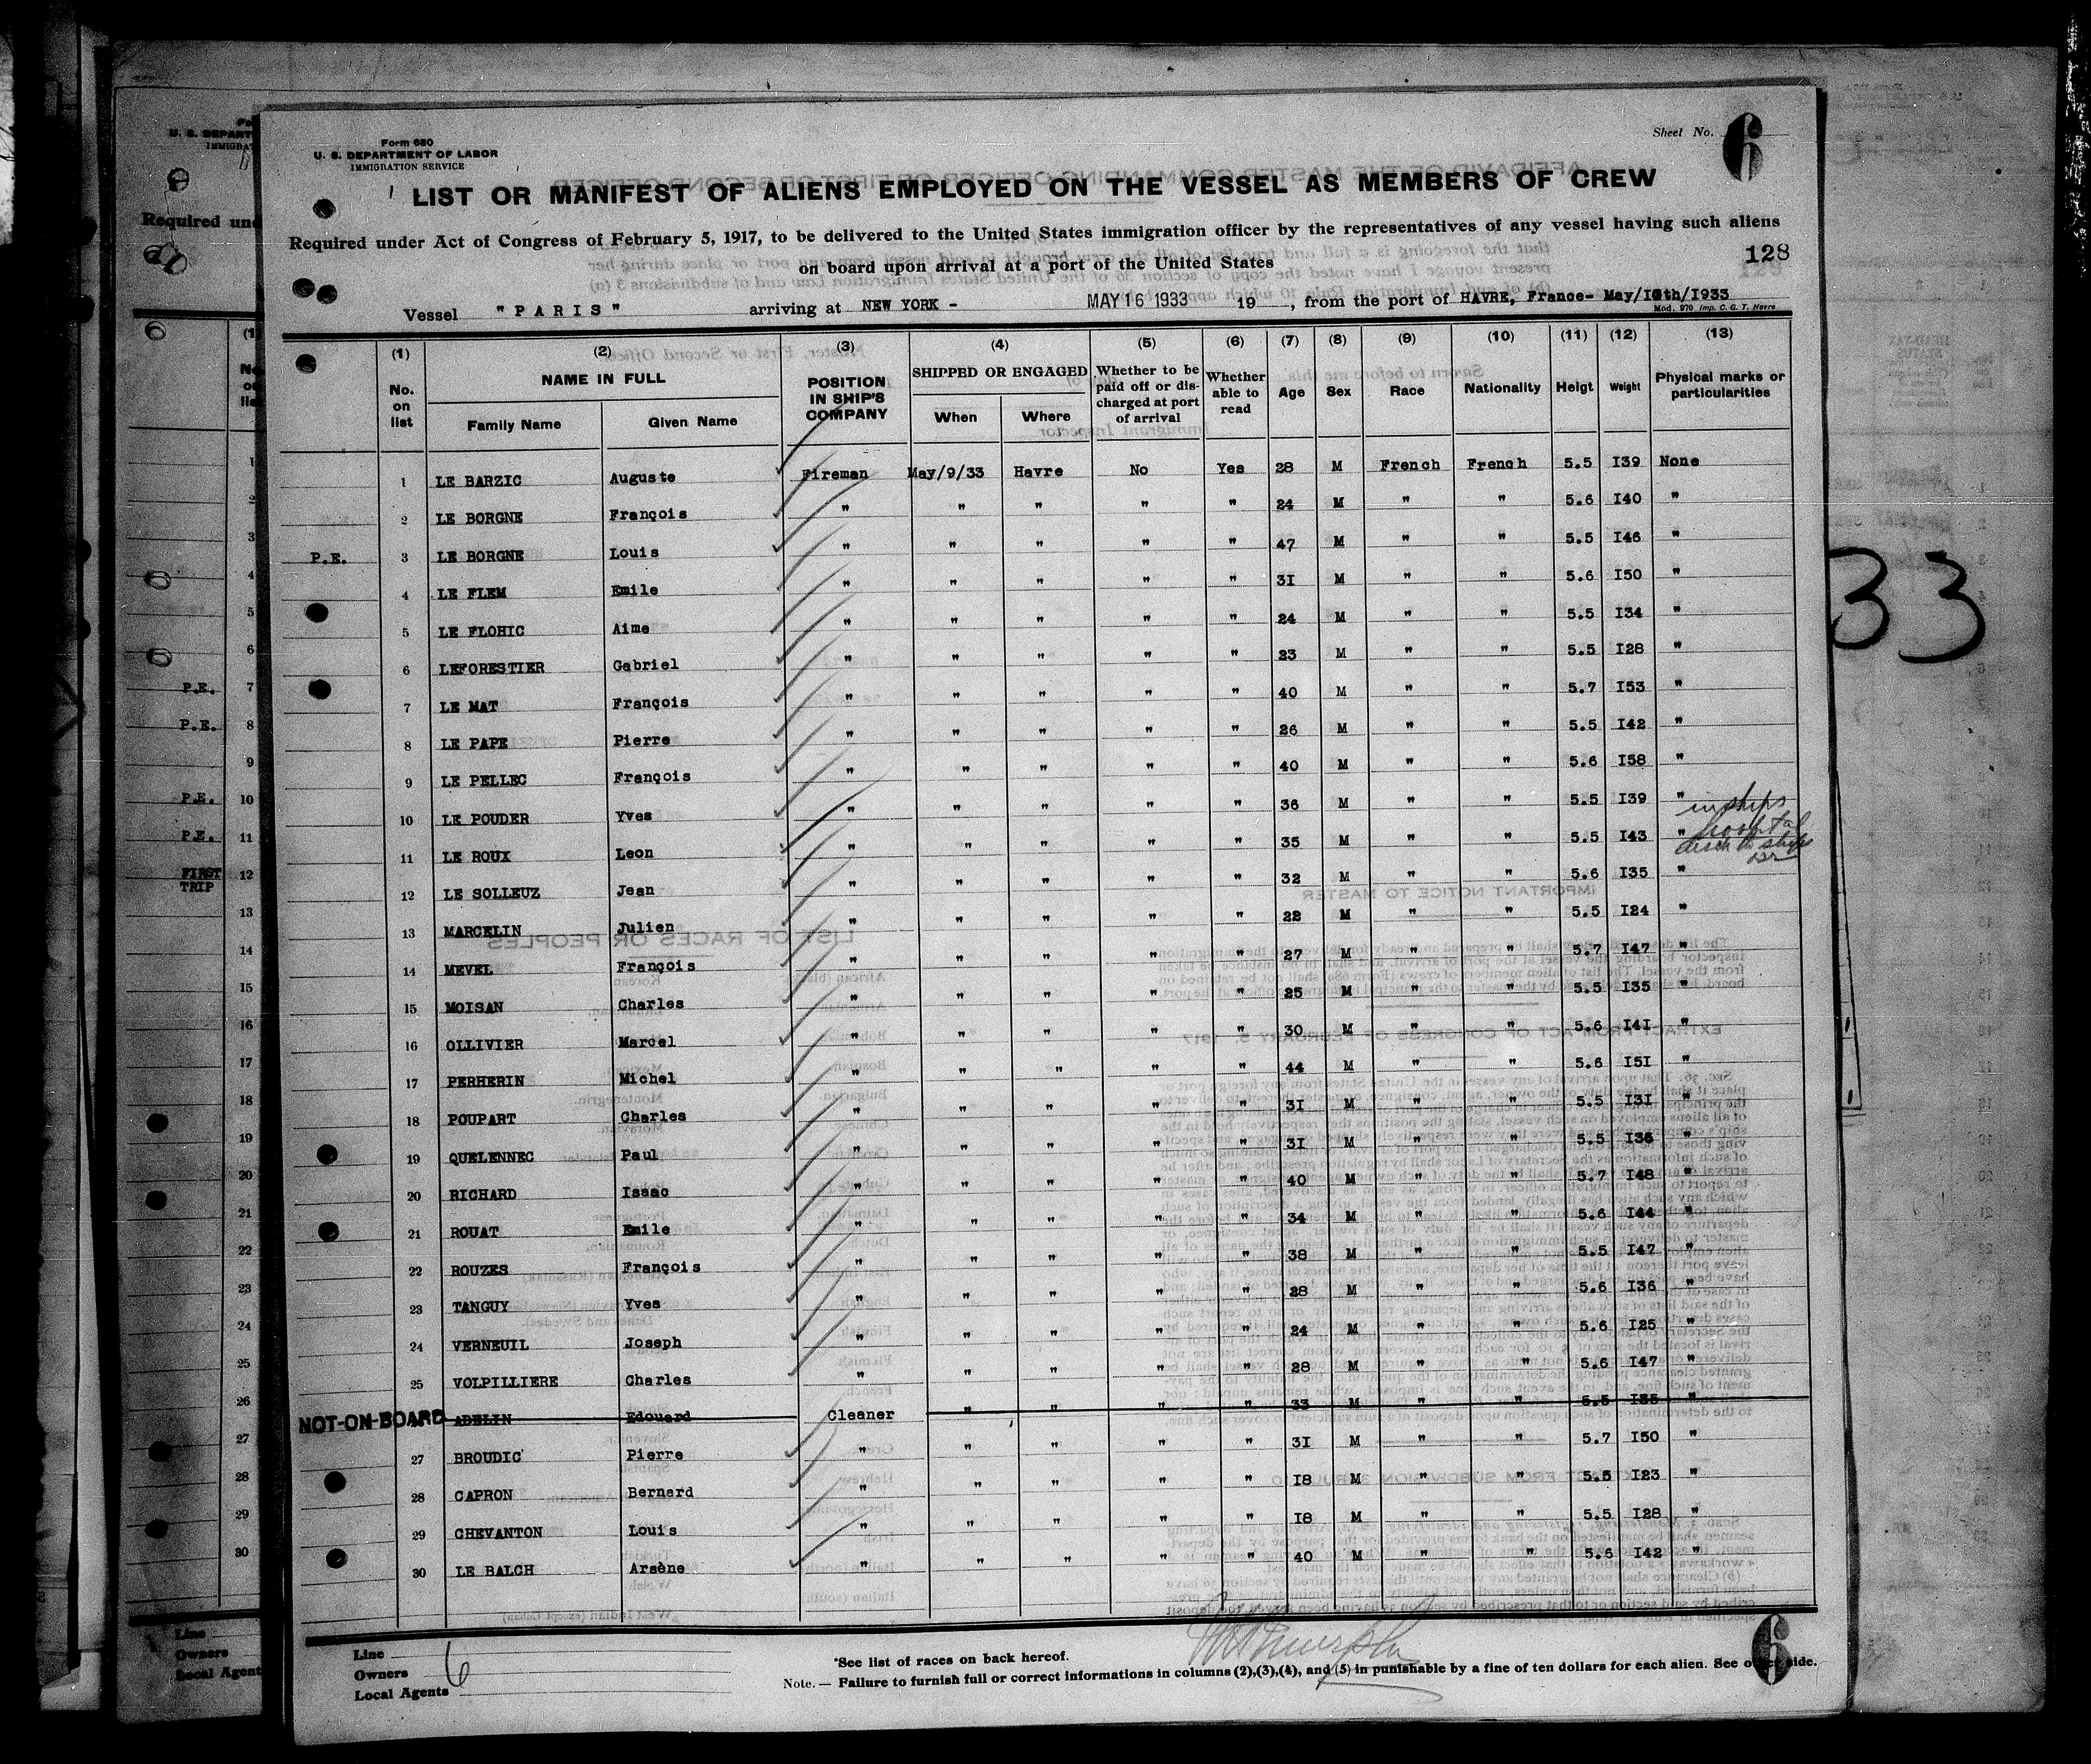 Form 680
U. S. DEPARTMENT OF LABOR
IMMIGRATION SERVICE
Sheet No. 6
LIST OR MANIFEST OF ALIENS EMPLOYED ON THE VESSEL AS MEMBERS OF CREW
Required under Act of Congress of February 5, 1917, to be delivered to the United States immigration officer by the representatives of any vessel having such aliens
on board upon arrival at a port of the United States
128
Vessel "PARIS" arriving at NEW YORK - MAY 16 1933 19 , from the port of HAVRE, France- May/10th/1933
Mod. 970 Imp. C. G. T. Havre
(1) No. on list (2) NAME IN FULL Family Name Given Name (3) POSITION IN SHIP'S COMPANY (4) SHIPPED OR ENGAGED When Where (5) Whether to be paid off or discharged at port of arrival (6) Whether able to read (7) Age (8) Sex (9) Race (10) Nationality (11) Heigt (12) Weight (13) Physical marks or particularities
1 LE BARZIC Auguste Fireman May/9/33 Havre No Yes 28 M French French 5.5 I39 None
2 LE BORGNE François " " " " " 24 M " " 5.6 I40 "
P.E. 3 LE BORGNE Louis " " " " " 47 M " " 5.5 I46 "
4 LE FLEM Emile " " " " " 3I M " " 5.6 I50 "
5 LE FLOHIC Aime " " " " " 24 M " " 5.5 I34 "
6 LEFORESTIER Gabriel " " " " " 23 M " " 5.5 I28 "
7 LE MAT François " " " " " 40 M " " 5.7 I53 "
8 LE PAPE Pierre " " " " " 26 M " " 5.5 I42 "
9 LE PELLEC François " " " " " 40 M " " 5.6 I58 "
10 LE POUDER Yves " " " " " 36 M " " 5.5 I39 " in ships
11 LE ROUX Leon " " " " " 35 M " " 5.5 I43 " hospital
12 LE SOLLEUZ Jean " " " " " 32 M " " 5.6 I35 "
13 MARCELIN Julien " " " " " 22 M " " 5.5 I24 "
14 MEVEL François " " " " " 27 M " " 5.7 I47 "
15 MOISAN Charles " " " " " 25 M " " 5.5 I35 "
16 OLLIVIER Marcel " " " " " 30 M " " 5.6 I4I "
17 PERHERIN Michel " " " " " 44 M " " 5.6 I5I "
18 POUPART Charles " " " " " 3I M " " 5.5 I3I "
19 QUELENNEC Paul " " " " " 3I M " " 5.5 I36 "
20 RICHARD Isaac " " " " " 40 M " " 5.7 I48 "
21 ROUAT Emile " " " " " 34 M " " 5.6 I44 "
22 ROUZES François " " " " " 38 M " " 5.5 I47 "
23 TANGUY Yves " " " " " 28 M " " 5.6 I36 "
24 VERNEUIL Joseph " " " " " 24 M " " 5.6 I25 "
25 VOLPILLIERE Charles " " " " " 28 M " " 5.6 I47 "
NOT-ON-BOARD ADELIN Edouard Cleaner " " " " 33 M " " 5.5 I35 "
27 BROUDIC Pierre " " " " " 3I M " " 5.7 I50 "
28 CAPRON Bernard " " " " " I8 M " " 5.5 I23 "
29 CHEVANTON Louis " " " " " I8 M " " 5.5 I28 "
30 LE BALCH Arsène " " " " " 40 M " " 5.6 I42 "
Line
Owners 6
Local Agents
*See list of races on back hereof.
Note.— Failure to furnish full or correct informations in columns (2),(3),(4), and (5) in punishable by a fine of ten dollars for each alien. See other side.
6
33
Required und
P.E. 7
P.E. 8
P.E. 10
P.E. 11
FIRST TRIP 12
Line
Owners
Local Agent